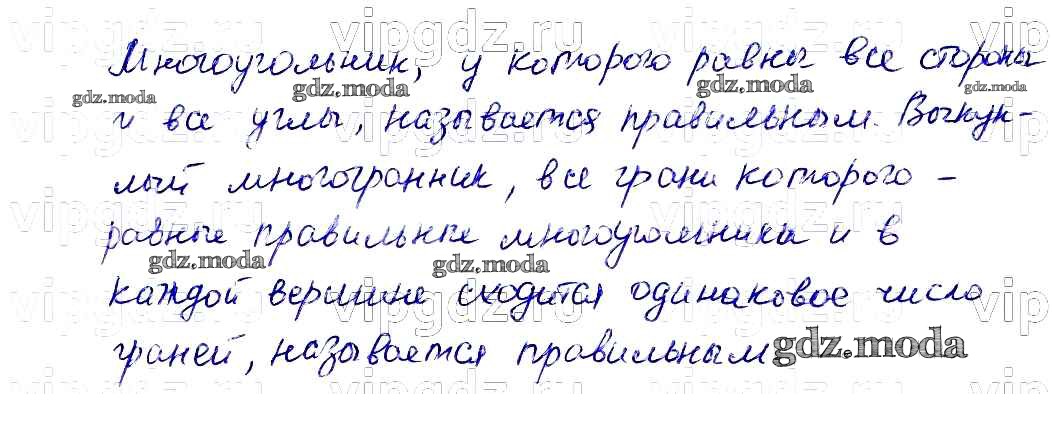 Многоугольник, у которого равны все стороны
и все углы, называется правильным. Выпук-
лый многогранник, все грани которого -
равные правильные многоугольники и в
каждой вершине сходится одинаковое число
граней, называется правильным
gdz.moda
gdz.moda
gdz.moda
gdz.moda
gdz.moda
gdz.moda
gdz.moda
gdz.moda
vipgdz.ru